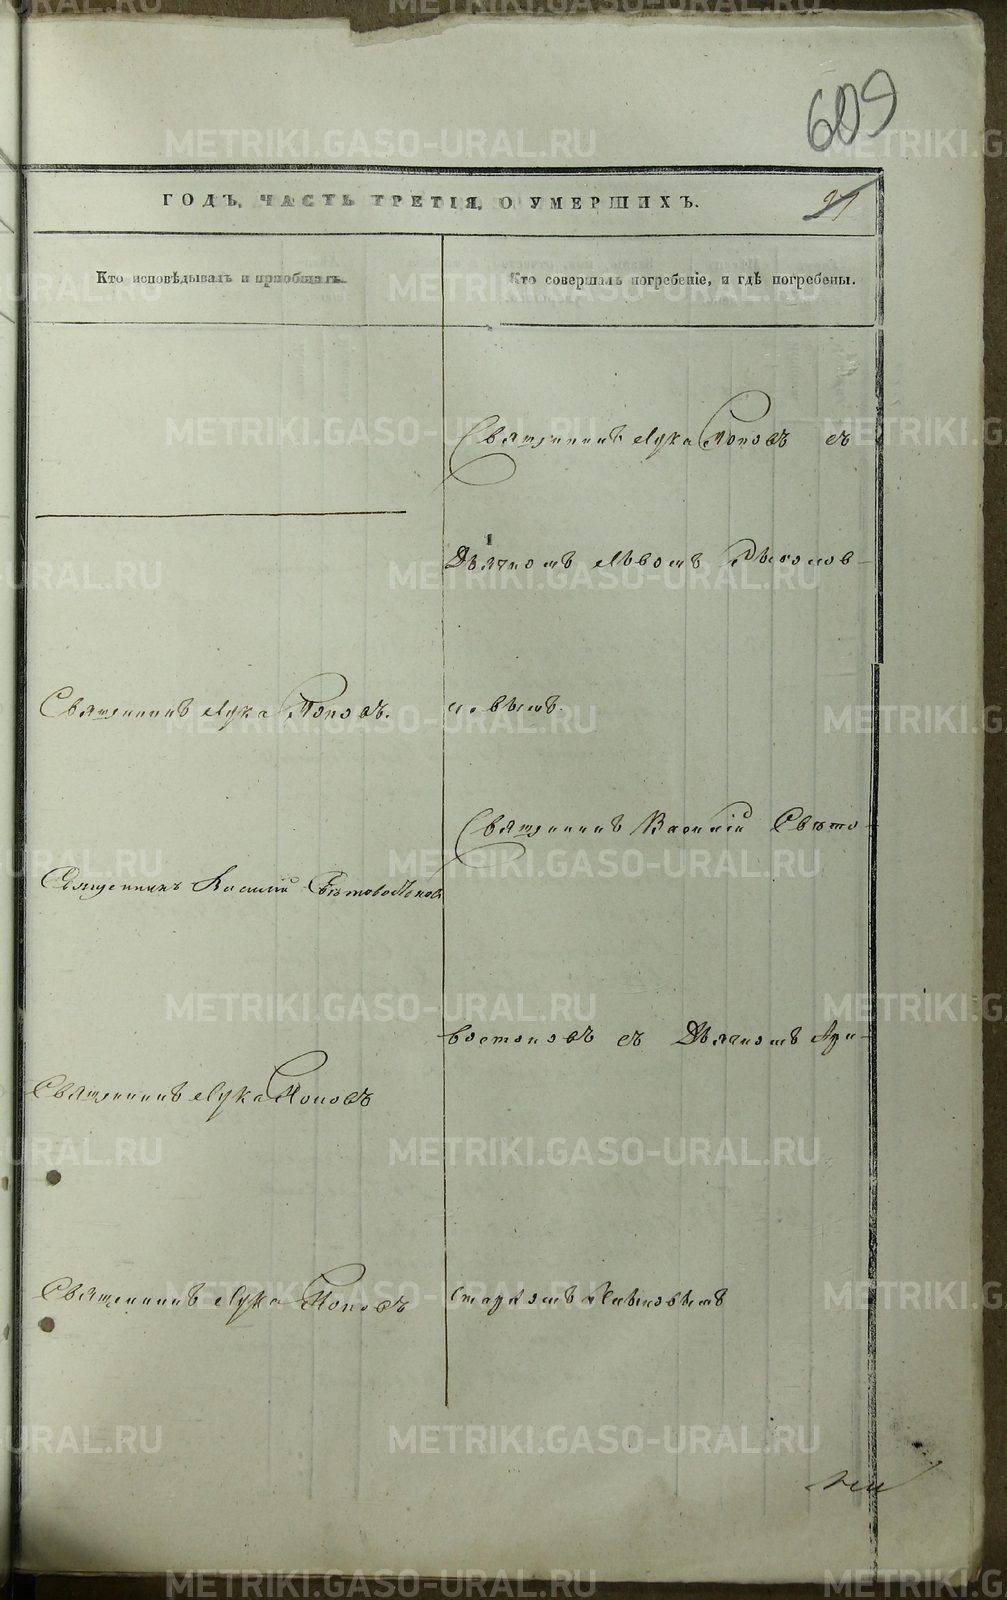 609
21
ГОДЪ, ЧАСТЬ ТРЕТІЯ, О УМЕРШИХЪ.
Кто исповѣдывалъ и приобщалъ.
Кто совершалъ погребеніе, и гдѣ погребены.
Священникъ Лука Поповъ.
Священникъ Василій Свѣтовостоковъ
Священникъ Лука Поповъ
Священникъ Лука Поповъ
Священникъ Лука Поповъ съ
Дьячкомъ Львомъ
новымъ.
Священникъ Василій Свѣто-
востоковъ съ Дьячкомъ Ари-
стархомъ
METRIKI.GASO-URAL.RU